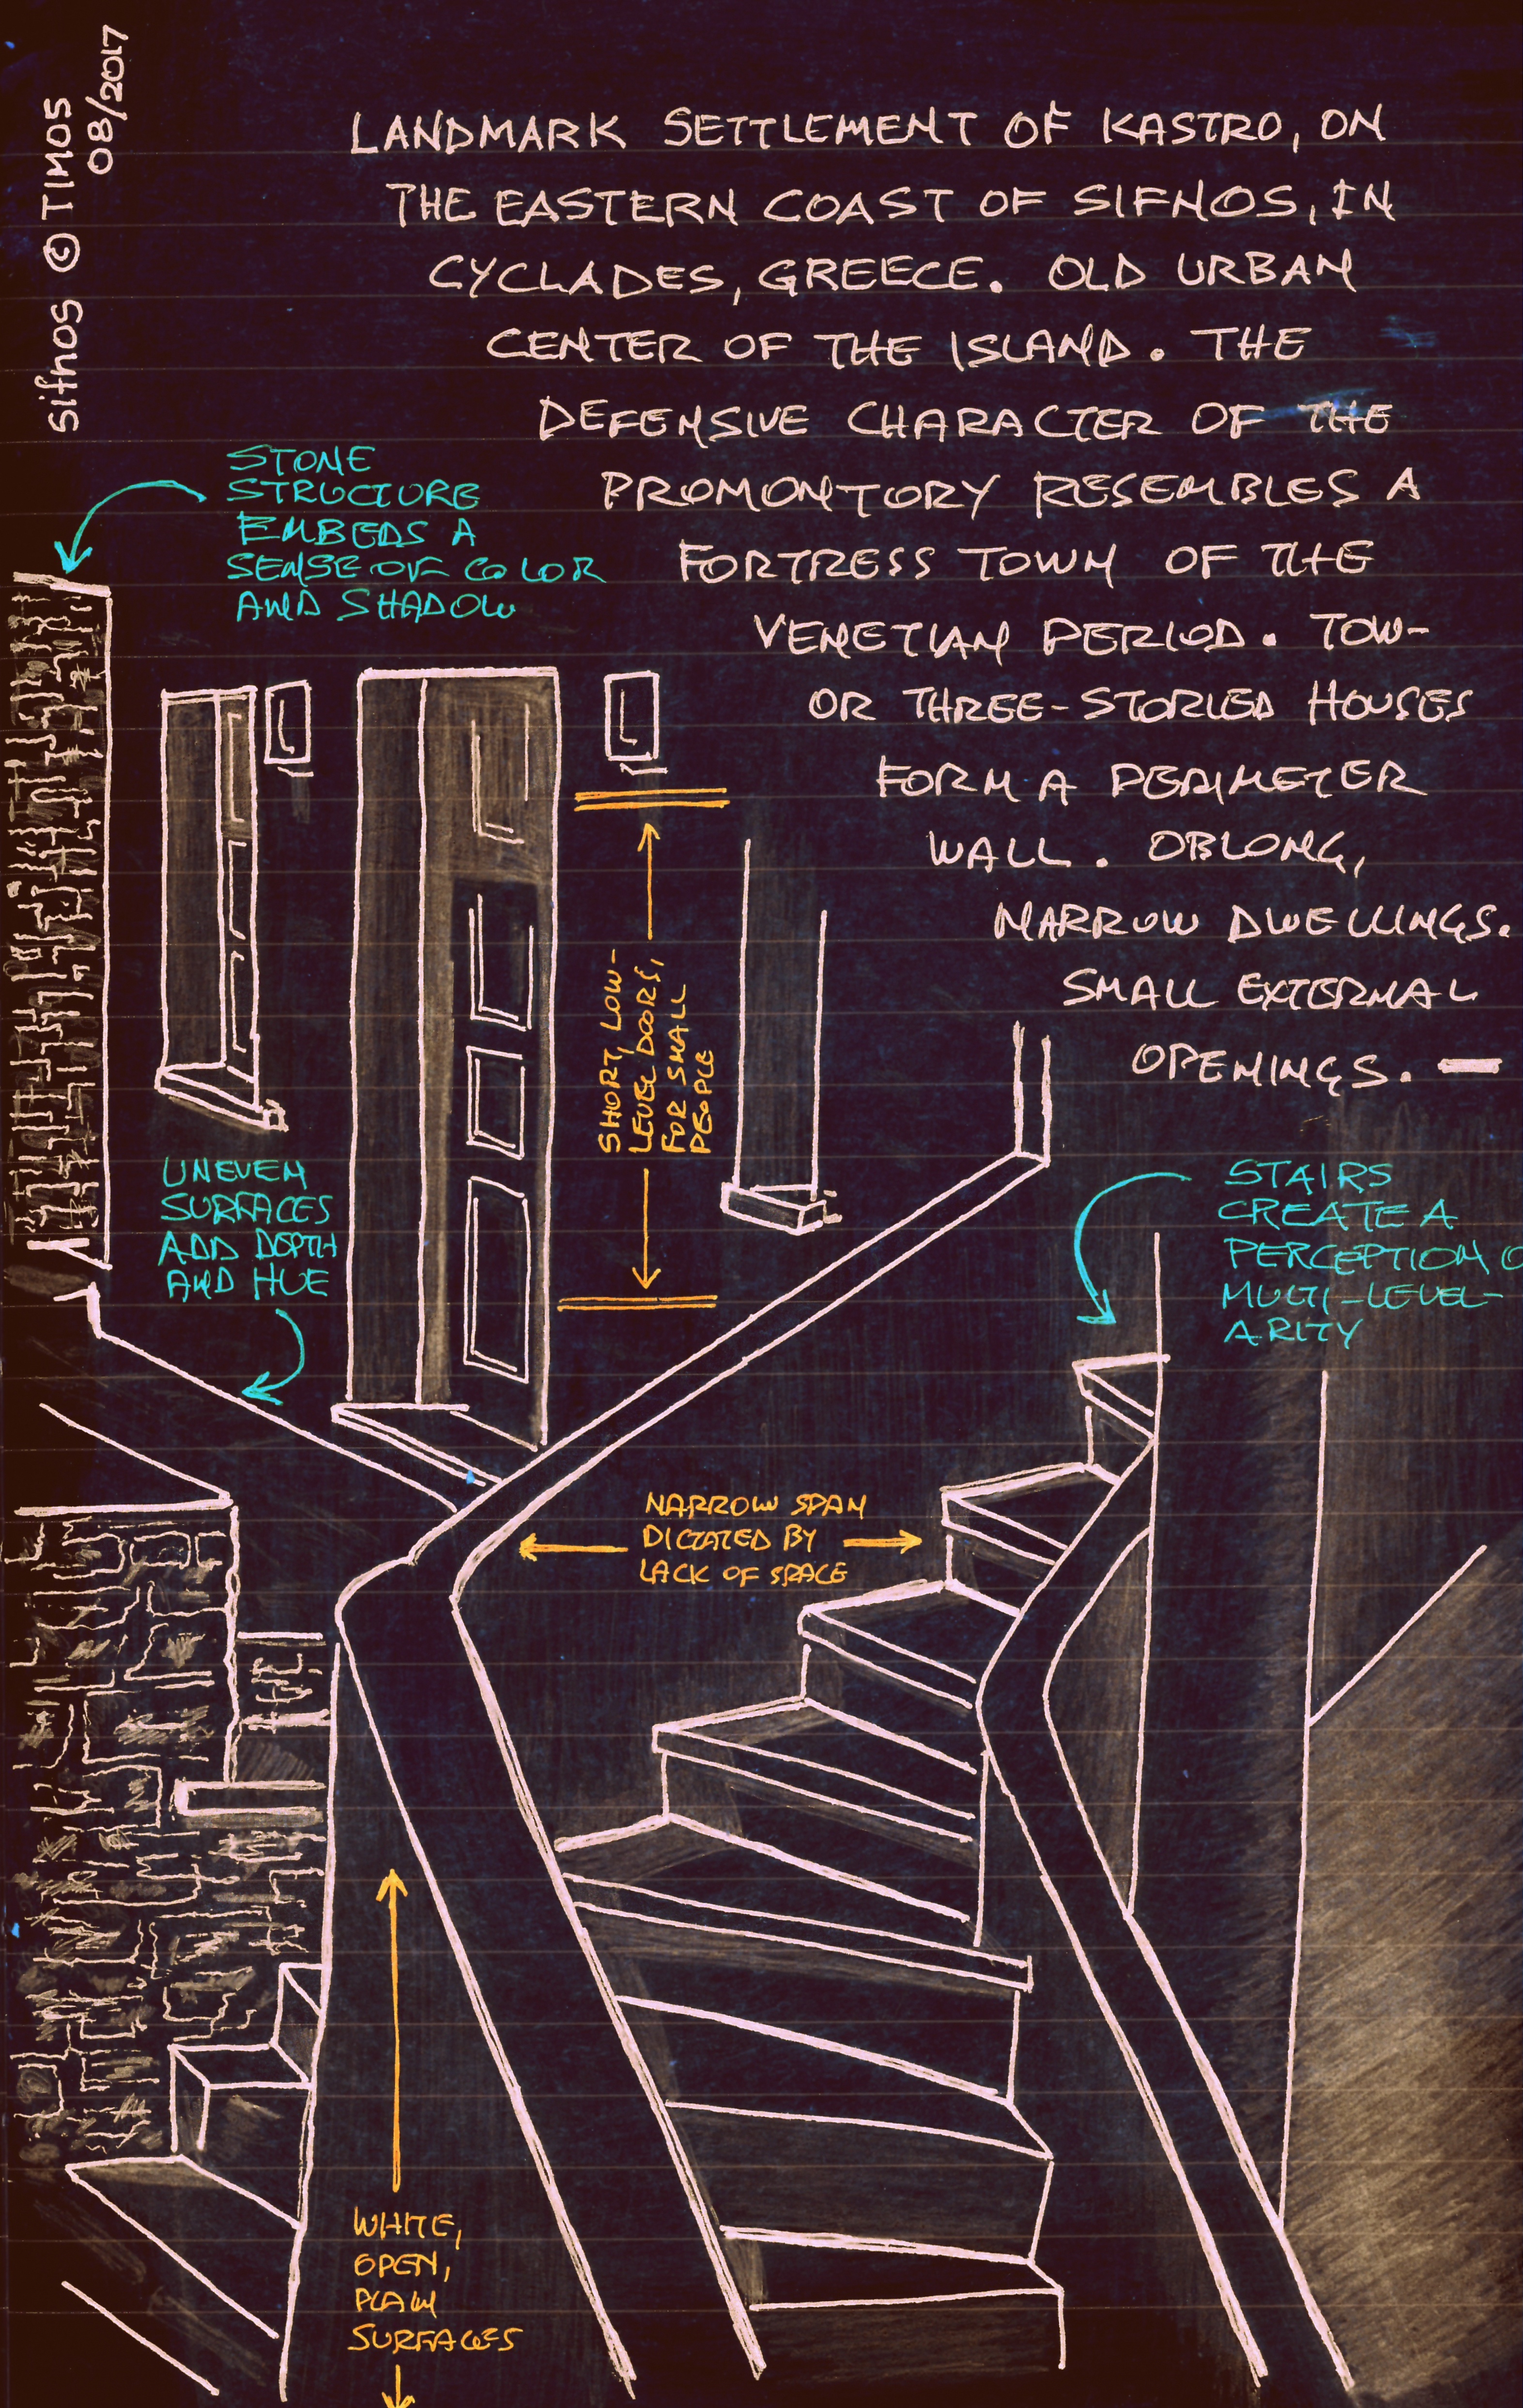 sifnos © TIMOS
08/2017
LANDMARK SETTLEMENT OF KASTRO, ON
THE EASTERN COAST OF SIFNOS, IN
CYCLADES, GREECE. OLD URBAN
CENTER OF THE ISLAND. THE
DEFENSIVE CHARACTER OF THE
PROMONTORY RESEMBLES A
FORTRESS TOWN OF THE
VENETIAN PERIOD. TOW-
OR THREE-STORIED HOUSES
FORM A PERIMETER
WALL. OBLONG,
NARROW DWELLINGS.
SMALL EXTERNAL
OPENINGS. —
STONE
STRUCTURE
EMBEDS A
SENSE OF COLOR
AND SHADOW
SHORT, LOW-
LEVEL DOORS,
FOR SMALL
PEOPLE
UNEVEN
SURFACES
ADD DEPTH
AND HUE
STAIRS
CREATE A
PERCEPTION O
MULTI-LEVEL-
ARITY
NARROW SPAN
DICTATED BY
LACK OF SPACE
WHITE,
OPEN,
PLAIN
SURFACES